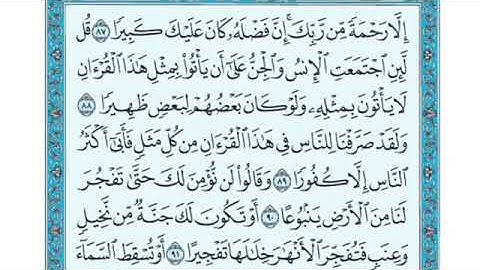 إِلَّا رَحْمَةً مِّن رَّبِّكَ ۚ إِنَّ فَضْلَهُۥ كَانَ عَلَيْكَ كَبِيرًا ٨٧ قُل
لَّئِنِ ٱجْتَمَعَتِ ٱلْإِنسُ وَٱلْجِنُّ عَلَىٰٓ أَن يَأْتُوا۟ بِمِثْلِ هَٰذَا ٱلْقُرْءَانِ
لَا يَأْتُونَ بِمِثْلِهِۦ وَلَوْ كَانَ بَعْضُهُمْ لِبَعْضٍ ظَهِيرًا ٨٨
وَلَقَدْ صَرَّفْنَا لِلنَّاسِ فِى هَٰذَا ٱلْقُرْءَانِ مِن كُلِّ مَثَلٍ فَأَبَىٰٓ أَكْثَرُ
ٱلنَّاسِ إِلَّا كُفُورًا ٨٩ وَقَالُوا۟ لَن نُّؤْمِنَ لَكَ حَتَّىٰ تَفْجُرَ
لَنَا مِنَ ٱلْأَرْضِ يَنۢبُوعًا ٩٠ أَوْ تَكُونَ لَكَ جَنَّةٌ مِّن نَّخِيلٍ
وَعِنَبٍ فَتُفَجِّرَ ٱلْأَنْهَٰرَ خِلَٰلَهَا تَفْجِيرًا ٩١ أَوْ تُسْقِطَ ٱلسَّمَآءَ